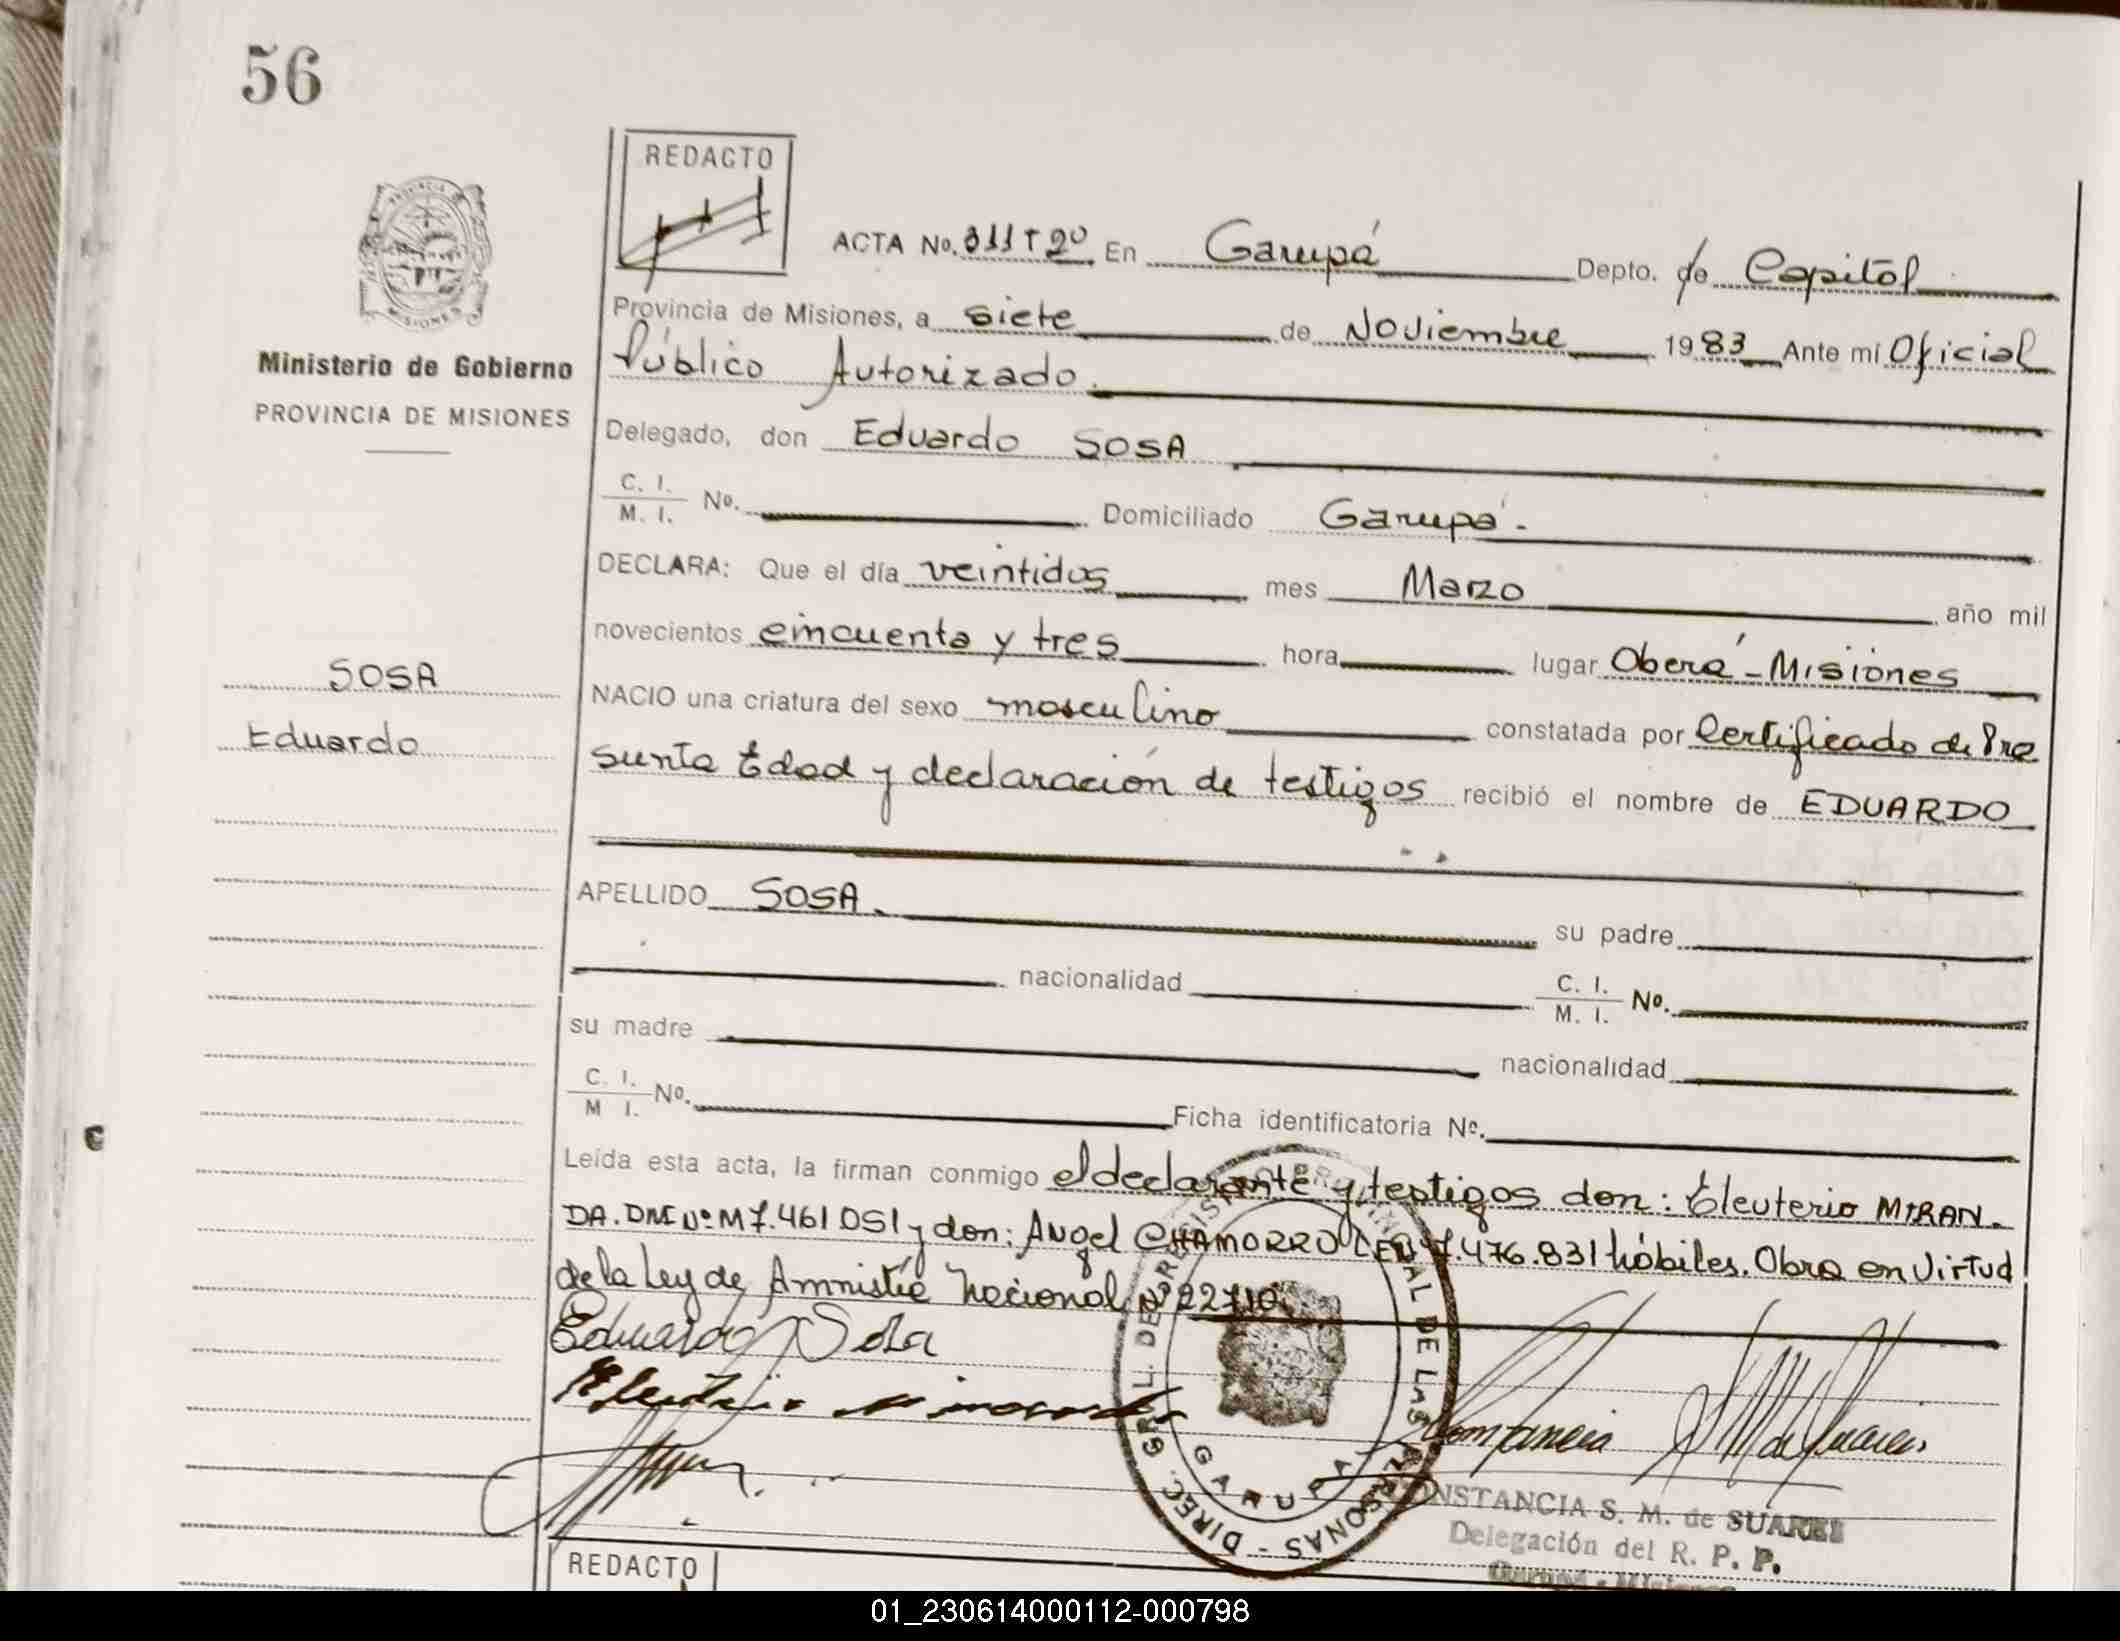 56
REDACTO
PROVINCIA DE
MISIONES
ACTA No. 311 Tº 2º En Garupá Depto. de Capital
Provincia de Misiones, a siete de Noviembre 1983 Ante mi Oficial
Público Autorizado.
Ministerio de Gobierno
PROVINCIA DE MISIONES
Delegado, don Eduardo SOSA
C. I.
M. I. No. Domiciliado Garupá.
DECLARA: Que el día veintidos mes Marzo año mil
novecientos cincuenta y tres hora lugar Oberá - Misiones
SOSA
Eduardo
NACIO una criatura del sexo masculino constatada por Certificado de Pre
sunta Edad y declaración de testigos recibió el nombre de EDUARDO
APELLIDO SOSA. su padre
nacionalidad C. I.
M. I. No.
su madre nacionalidad
C. I.
M I. No. Ficha identificatoria No.
Leída esta acta, la firman conmigo el declarante y testigos don: Eleuterio MIRAN-
DA. DNI Nº M 7.461.051 y don: Angel CHAMORRO 7.476.831 hábiles. Obra en Virtud
de la Ley de Amnistía Nacional Nº 22710.
Eduardo Sosa
DIREC. GRAL. DEL REGISTRO PROVINCIAL DE LAS PERSONAS -
GARUPA
CONSTANCIA S. M. de SUAREZ
Delegación del R. P. P.
Garupá - Misiones
REDACTO
01_230614000112-000798